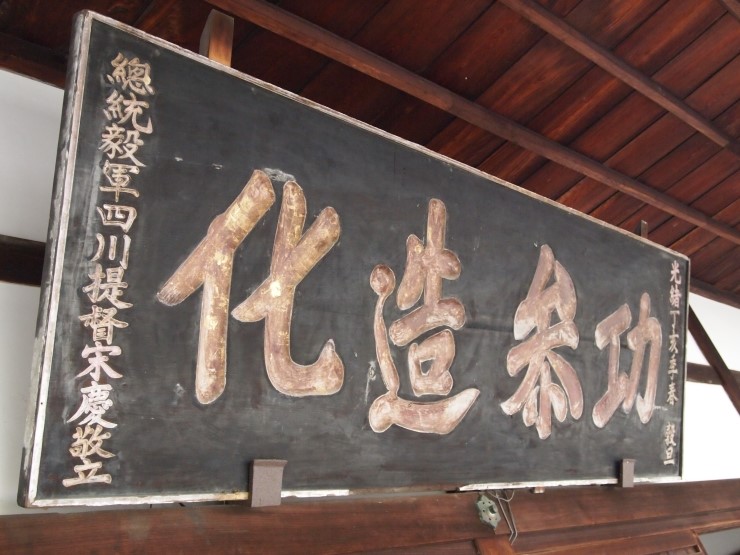 光緒丁亥年春 穀旦
功叅造化
總統毅軍四川提督宋慶敬立